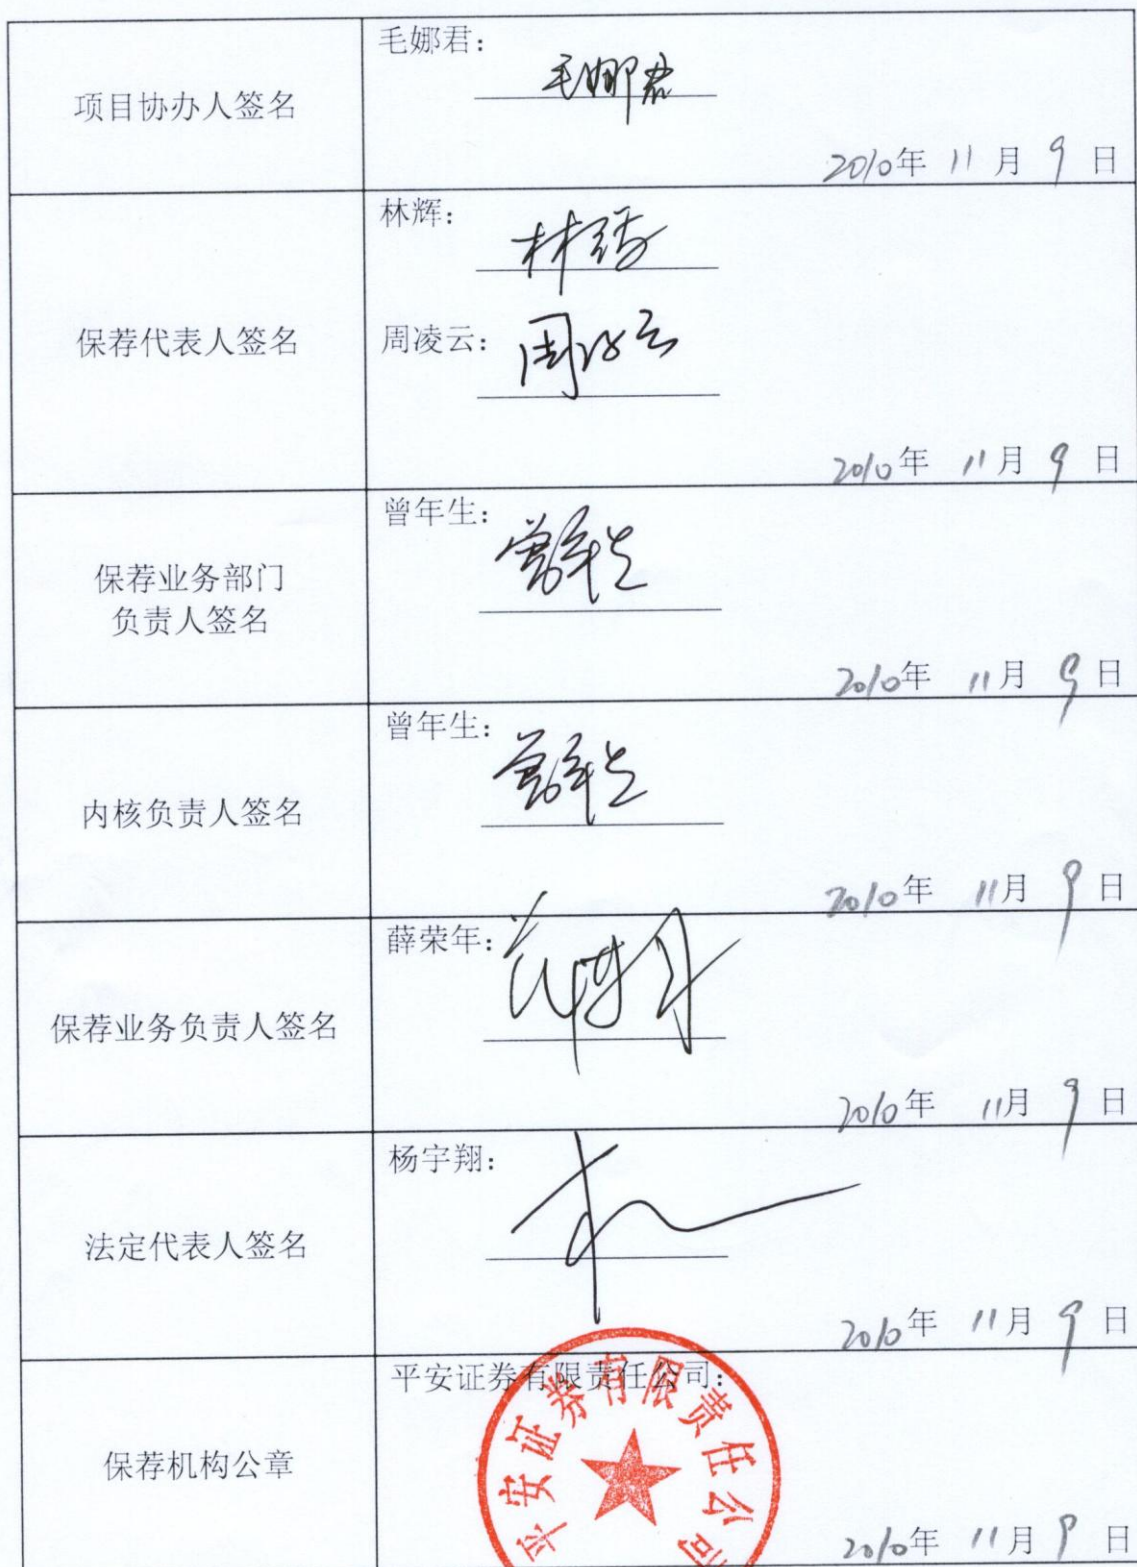 项目协办人签名
毛娜君：
毛娜君
2010年 11月 9日
保荐代表人签名
林辉：
林辉
周凌云：
周凌云
2010年 11月 9日
保荐业务部门
负责人签名
曾年生：
曾年生
2010年 11月 9日
内核负责人签名
曾年生：
曾年生
2010年 11月 9日
保荐业务负责人签名
薛荣年：
薛荣年
2010年 11月 9日
法定代表人签名
杨宇翔：
2010年 11月 9日
保荐机构公章
平安证券有限责任公司：
平安证券有限责任公司
2010年 11月 9日